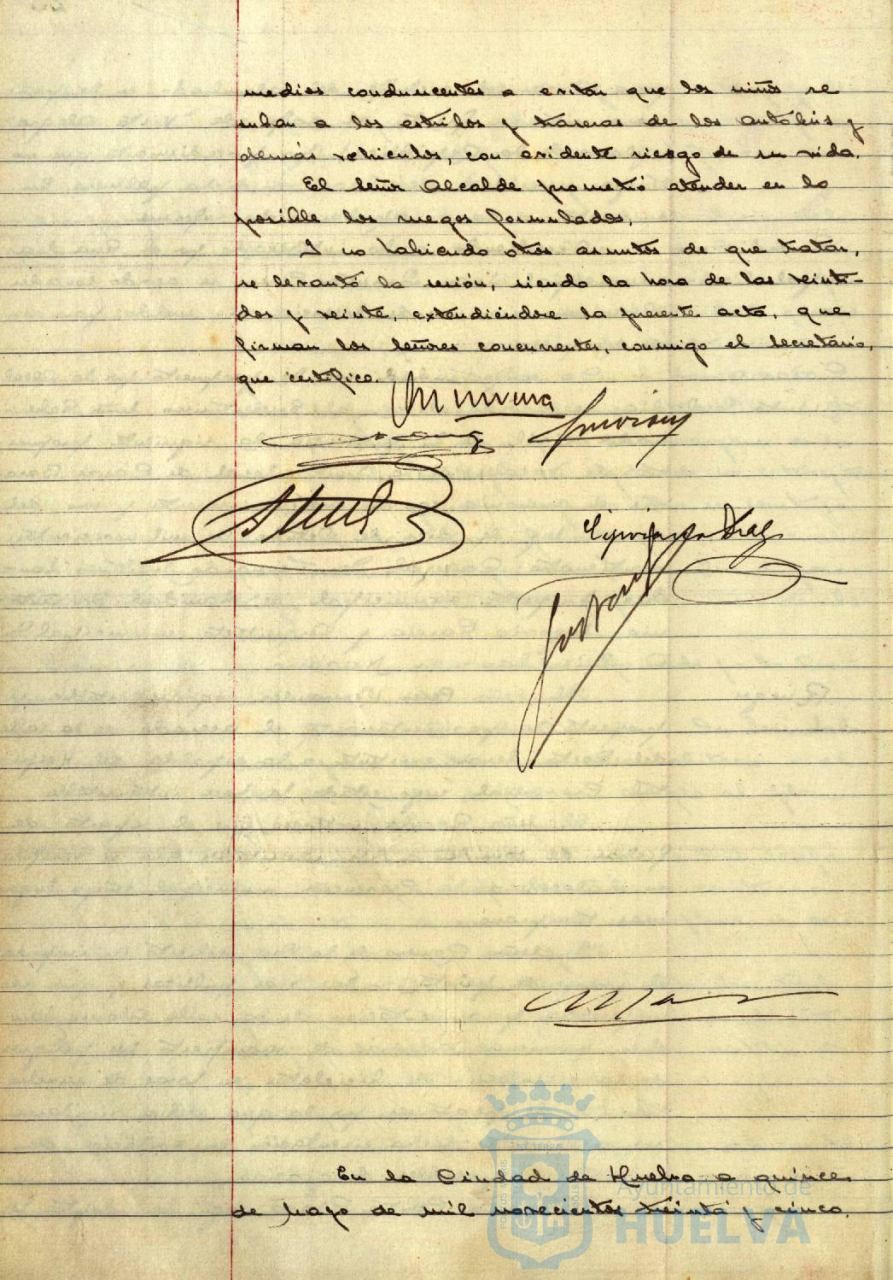 medios conduncentes a evitar que los niños se
suban a los estribos y traseras de los autobús y
demás vehículos, con evidente riesgo de su vida.
El Señor Alcalde prometió atender en lo
posible los ruegos formulados.
Y no habiendo otros asuntos de que tratar,
se levantó la sesión, siendo la hora de las veinti-
dos y veinte, extendiéndose la presente acta, que
firman los Señores concurrentes, conmigo el Secretario,
que certifico.
Cipriano Diaz
En la Ciudad de Huelva a quince
de Mayo de mil novecientos treinta y cinco.
Ayuntamiento de
HUELVA